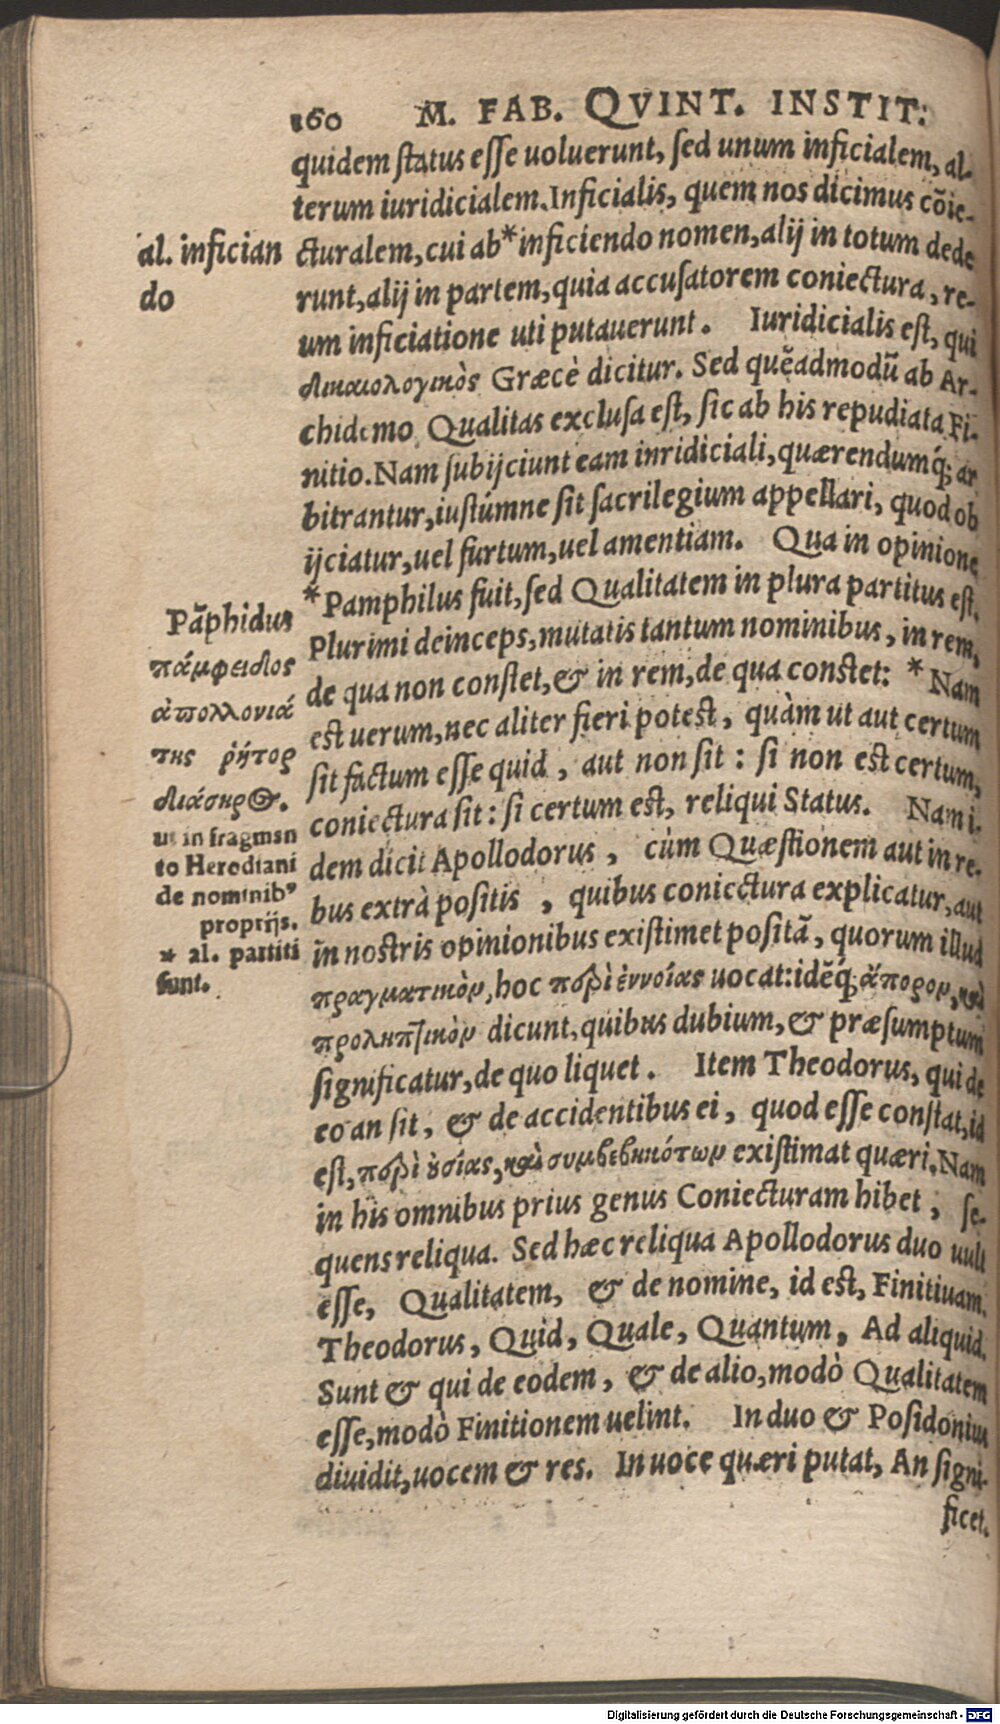 160 M. FAB. QVINT. INSTIT.
quidem status esse uoluerunt, sed unum inficialem, al-
terum iuridicialem. Inficialis, quem nos dicimus cõie-
cturalem, cui ab * inficiendo nomen, alij in totum dede
runt, alij in partem, quia accusatorem coniectura, re-
um inficiatione uti putauerunt. Iuridicialis est, qui
δικαιολογικὸς Græcè dicitur. Sed quẽadmodũ ab Ar-
chidemo Qualitas exclusa est, sic ab his repudiata Fi-
nitio. Nam subijciunt eam inridiciali, quærendumq́; ar
bitrantur, iustúmne sit sacrilegium appellari, quod ob
ijciatur, uel furtum, uel amentiam. Qua in opinione
* Pamphilus fuit, sed Qualitatem in plura partitus est.
Plurimi deinceps, mutatis tantum nominibus, in rem,
de qua non constet, & in rem, de qua constet: * Nam
est uerum, nec aliter fieri potest, quàm ut aut certum
sit factum esse quid, aut non sit: si non est certum,
coniectura sit: si certum est, reliqui Status. Nam i-
dem dicit Apollodorus, cùm Quæstionem aut in re-
bus extrà positis, quibus coniectura explicatur, aut
in nostris opinionibus existimet positã, quorum illud
πραγματικὸν, hoc περὶ ἐννοίας uocat: idẽq́; ἄπορον, καὶ
προληπτικὸν dicunt, quibus dubium, & præsumptum
significatur, de quo liquet. Item Theodorus, qui de
eo an sit, & de accidentibus ei, quod esse constat, id
est, περὶ ὀσίας, καὶ συμβεβηκότων existimat quæri. Nam
in his omnibus prius genus Coniecturam hibet, se-
quens reliqua. Sed hæc reliqua Apollodorus duo uult
esse, Qualitatem, & de nomine, id est, Finitiuam.
Theodorus, Quid, Quale, Quantum, Ad aliquid.
Sunt & qui de eodem, & de alio, modò Qualitatem
esse, modò Finitionem uelint. In duo & Posidonius
diuidit, uocem & res. In uoce quæri putat, An signi-
ficet.
al. infician
do
Pãphidus
πάμφειδος
ἀπολλονιά
της ῥήτορ
διάσηρος.
ut in fragmen
to Herodiani
de nominib⁹
proprijs.
* al. partiti
sunt.
Digitalisierung gefördert durch die Deutsche Forschungsgemeinschaft - DFG